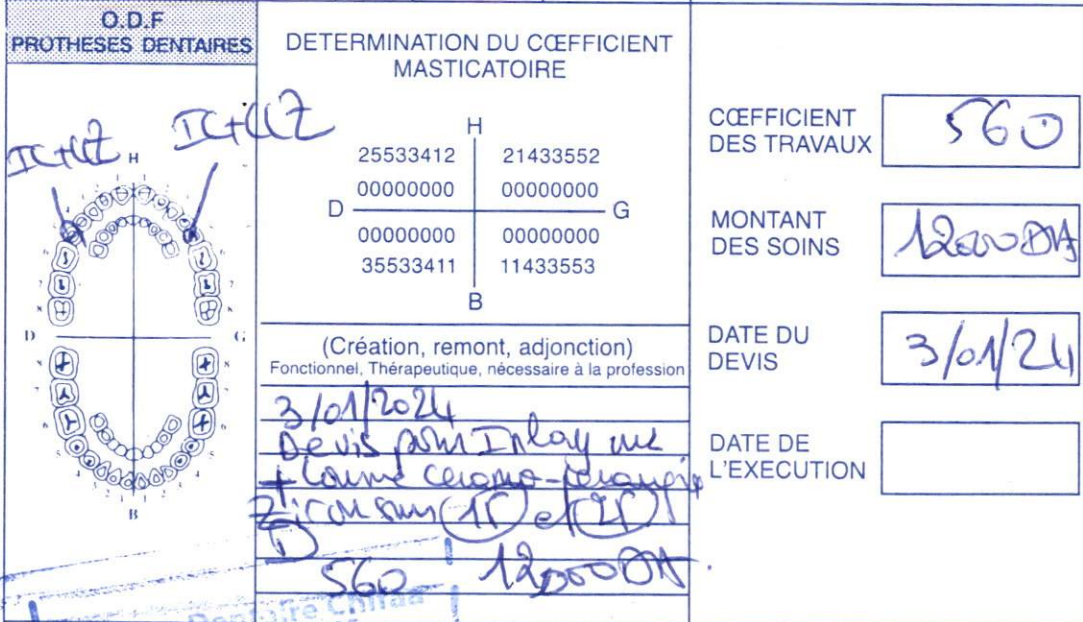 O.D.F
PROTHESES DENTAIRES
IC+CCZ
IC+CCZ
H
D
G
B
DETERMINATION DU CŒFFICIENT
MASTICATOIRE
H
25533412 21433552
00000000 00000000
D G
00000000 00000000
35533411 11433553
B
(Création, remont, adjonction)
Fonctionnel, Thérapeutique, nécessaire à la profession
3/01/2024
Devis pour Inlay
+ Couronne ceramo-
Zircon sur 15 et 25
D
560 12000DA.
CŒFFICIENT
DES TRAVAUX
560
MONTANT
DES SOINS
12000DA
DATE DU
DEVIS
3/01/24
DATE DE
L'EXECUTION
Dentaire Chifaa